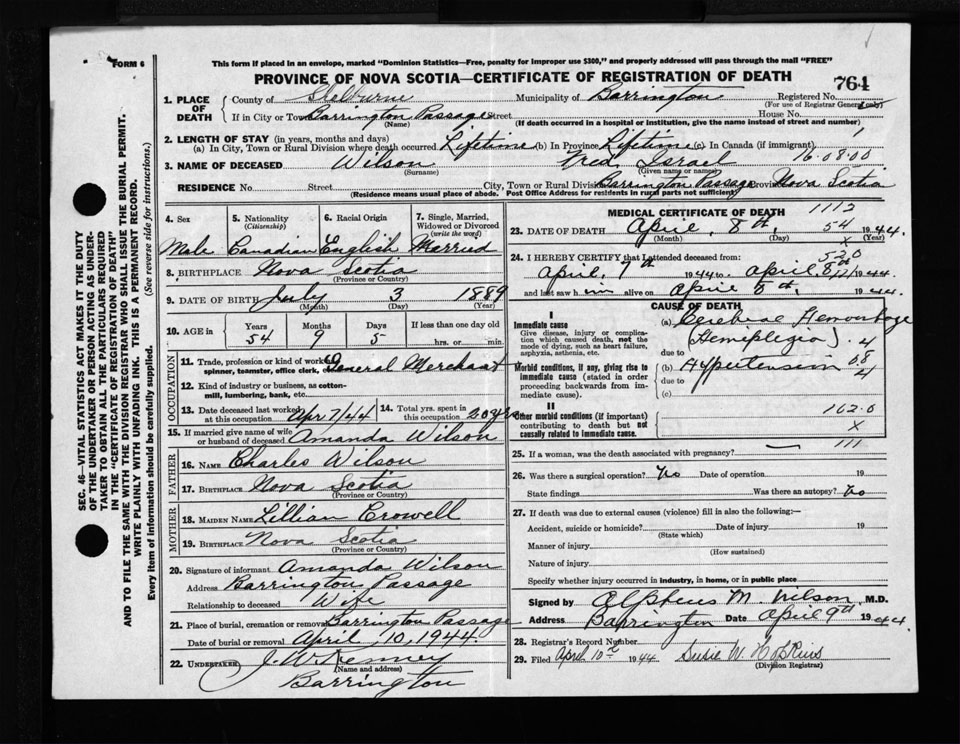 FORM 6
This form if placed in an envelope, marked "Dominion Statistics—Free, penalty for improper use $300," and properly addressed will pass through the mail "FREE"
PROVINCE OF NOVA SCOTIA—CERTIFICATE OF REGISTRATION OF DEATH
764
1. PLACE OF DEATH County of Shelburne Municipality of Barrington Registered No.
(For use of Registrar General
If in City or Town Barrington Passage Street House No.
(Name) (If death occurred in a hospital or institution, give the name instead of street and number)
2. LENGTH OF STAY (in years, months and days)
(a) In City, Town or Rural Division where death occurred Lifetime (b) In Province Lifetime (c) In Canada (if immigrant)
3. NAME OF DECEASED Wilson Fred Israel 16.08.00
(Surname) (Given name or names)
RESIDENCE No. Street City, Town or Rural Division Barrington Passage Province Nova Scotia
(Residence means usual place of abode. Post Office Address for residents in rural parts not sufficient)
4. Sex 5. Nationality (Citizenship) 6. Racial Origin 7. Single, Married, Widowed or Divorced (write the word)
Male Canadian English Married
8. BIRTHPLACE Nova Scotia
(Province or Country)
9. DATE OF BIRTH July 3 1889
(Month) (Day) (Year)
10. AGE in Years Months Days If less than one day old
54 9 5 hrs. or min.
OCCUPATION
11. Trade, profession or kind of work as spinner, teamster, office clerk, General Merchant
12. Kind of industry or business, as cotton-mill, lumbering, bank, etc.
13. Date deceased last worked at this occupation Apr 7/44 14. Total yrs. spent in this occupation 20 yrs
15. If married give name of wife or husband of deceased Amanda Wilson
FATHER
16. NAME Charles Wilson
17. BIRTHPLACE Nova Scotia
(Province or Country)
MOTHER
18. MAIDEN NAME Lillian Crowell
19. BIRTHPLACE Nova Scotia
(Province or Country)
20. Signature of informant Amanda Wilson
Address Barrington Passage
Relationship to deceased Wife
21. Place of burial, cremation or removal Barrington Passage
Date of burial or removal April 10, 1944
22. UNDERTAKER J. W. Kenney
(Name and address)
Barrington
MEDICAL CERTIFICATE OF DEATH 1112
23. DATE OF DEATH April, 8th, 54 1944
(Month) (Day) x (Year)
24. I HEREBY CERTIFY that I attended deceased from: 520
April, 7th 1944 to April 8th 1944
and last saw him alive on April 8th, 1944.
CAUSE OF DEATH
I
Immediate cause
Give disease, injury or complication which caused death, not the mode of dying, such as heart failure, asphyxia, asthenia, etc.
(a) Cerebral Hemorrhage
(Hemiplegia).
due to
Morbid conditions, if any, giving rise to immediate cause (stated in order proceeding backwards from immediate cause).
(b) Hypertension
due to
(c)
II
Other morbid conditions (if important) contributing to death but not causally related to immediate cause.
162.0
x
111
25. If a woman, was the death associated with pregnancy?
26. Was there a surgical operation? No Date of operation 19
State findings Was there an autopsy? No
27. If death was due to external causes (violence) fill in also the following:—
Accident, suicide or homicide? Date of injury 19
(State which)
Manner of injury
(How sustained)
Nature of injury
Specify whether injury occurred in industry, in home, or in public place
Signed by Alpheus M. Wilson M.D.
Address Barrington Date April 9th 1944.
28. Registrar's Record Number 2
29. Filed April 10 1944 Susie W. Hopkins
(Division Registrar)
SEC. 46—VITAL STATISTICS ACT MAKES IT THE DUTY
OF THE UNDERTAKER OR PERSON ACTING AS UNDER-
TAKER TO OBTAIN ALL THE PARTICULARS REQUIRED
IN THE "CERTIFICATE OF REGISTRATION OF DEATH"
AND TO FILE THE SAME WITH THE DIVISION REGISTRAR WHO SHALL ISSUE THE BURIAL PERMIT.
WRITE PLAINLY WITH UNFADING INK. THIS IS A PERMANENT RECORD.
Every item of information should be carefully supplied. (See reverse side for instructions.)